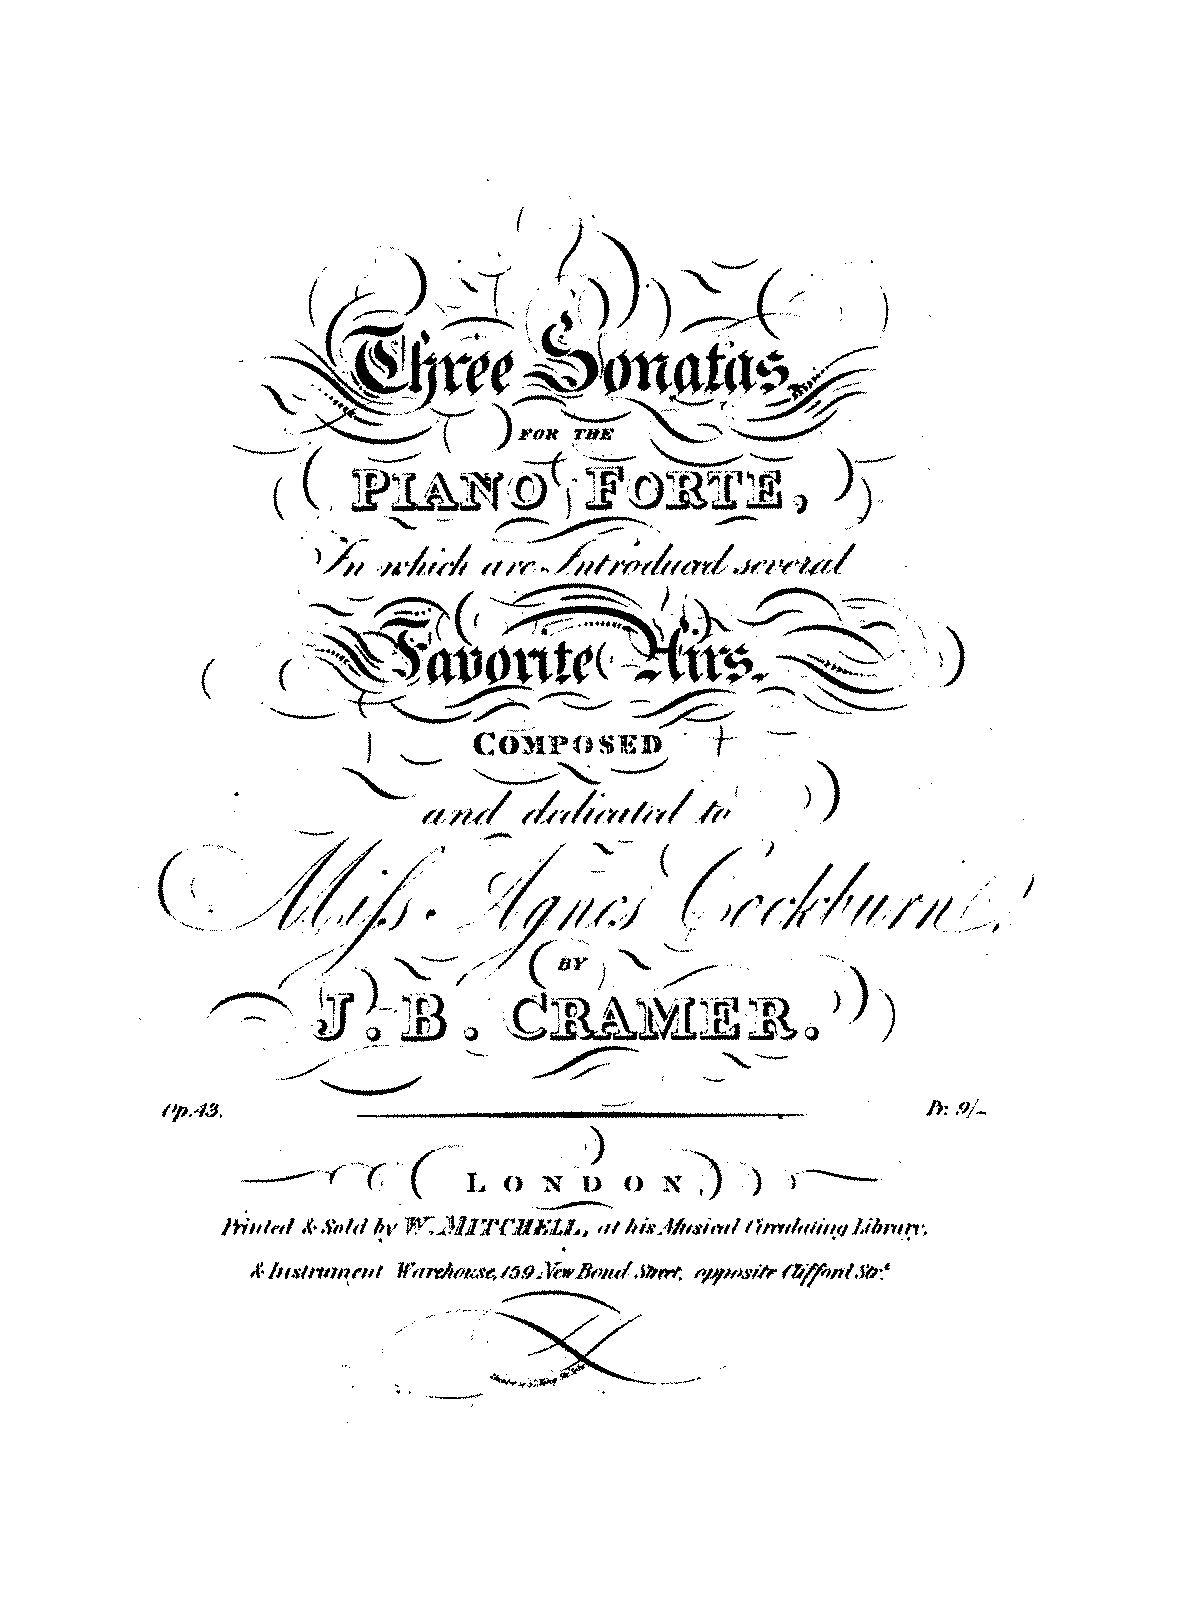 Three Sonatas,
FOR THE
PIANO FORTE,
In which are Introduced several
Favorite Airs.
COMPOSED
and dedicated to
Miſs Agnes Cockburn,
BY
J. B. CRAMER.
Op. 43. Pr: 9/-
LONDON
Printed & Sold by W. MITCHELL, at his Musical Circulating Library,
& Instrument Warehouse, 159 New Bond Street, opposite Clifford Strt.